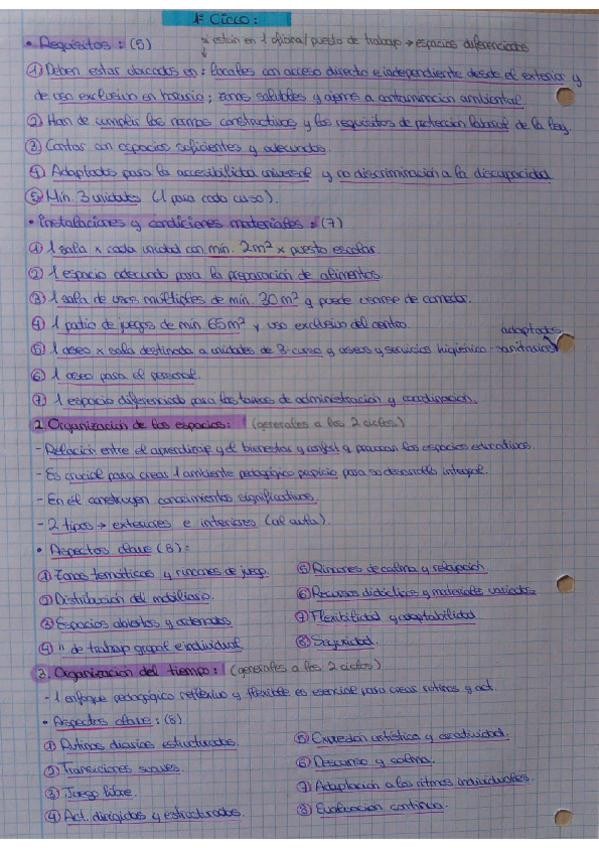 1º Ciclo:
• Requisitos: (5) * están en 1 oficina/puesto de trabajo → espacios diferenciados
① Deben estar ubicados en: locales con acceso directo e independiente desde el exterior y
de uso exclusivo en horario; zonas salubles y ajeno a contaminación ambiental.
② Han de cumplir las normas constructivas y los requisitos de protección laboral de la ley.
③ Contar con espacios suficientes y adecuados.
④ Adaptados para la accesibilidad universal y no discriminación a la discapacidad
⑤ Mín. 3 unidades (1 para cada curso).
• Instalaciones y condiciones materiales: (7)
① 1 sala x cada unidad con mín. 2m² x puesto escolar.
② 1 espacio adecuado para la preparación de alimentos.
③ 1 sala de usos múltiples de mín. 30 m² y puede usarse de comedor.
④ 1 patio de juegos de mín 65m² y uso exclusivo del centro.
adaptados
⑤ 1 aseo x sala destinada a unidades de 3 curso y aseos y servicios higiénico-sanitarios
⑥ 1 aseo para el personal.
⑦ 1 espacio diferenciado para las tareas de administración y coordinación.
2. Organización de los espacios: (generales a los 2 ciclos)
- Relación entre el aprendizaje y el bienestar y confort q procuran los espacios educativos.
- Es crucial para crear 1 ambiente pedagógico propicio para su desarrollo integral.
- En él construyen conocimientos significativos.
- 2 tipos → exteriores e interiores (al aula).
• Aspectos clave (8):
① Zonas temáticas y rincones de juego.
② Distribución del mobiliario.
③ Espacios abiertos y ordenados
④ " de trabajo grupal e individual
⑤ Rincones de calma y relajación
⑥ Recursos didácticos y materiales variados
⑦ Flexibilidad y adaptabilidad
⑧ Seguridad.
3. Organización del tiempo: (generales a los 2 ciclos)
- 1 enfoque pedagógico reflexivo y flexible es esencial para crear rutinas y act.
• Aspectos clave: (8)
① Rutinas diarias estructuradas.
② Transiciones suaves.
③ Juego libre.
④ Act. dirigidas y estructuradas.
⑤ Expresión artística y creatividad.
⑥ Descanso y calma.
⑦ Adaptación a los ritmos individuales.
⑧ Evaluación continua.